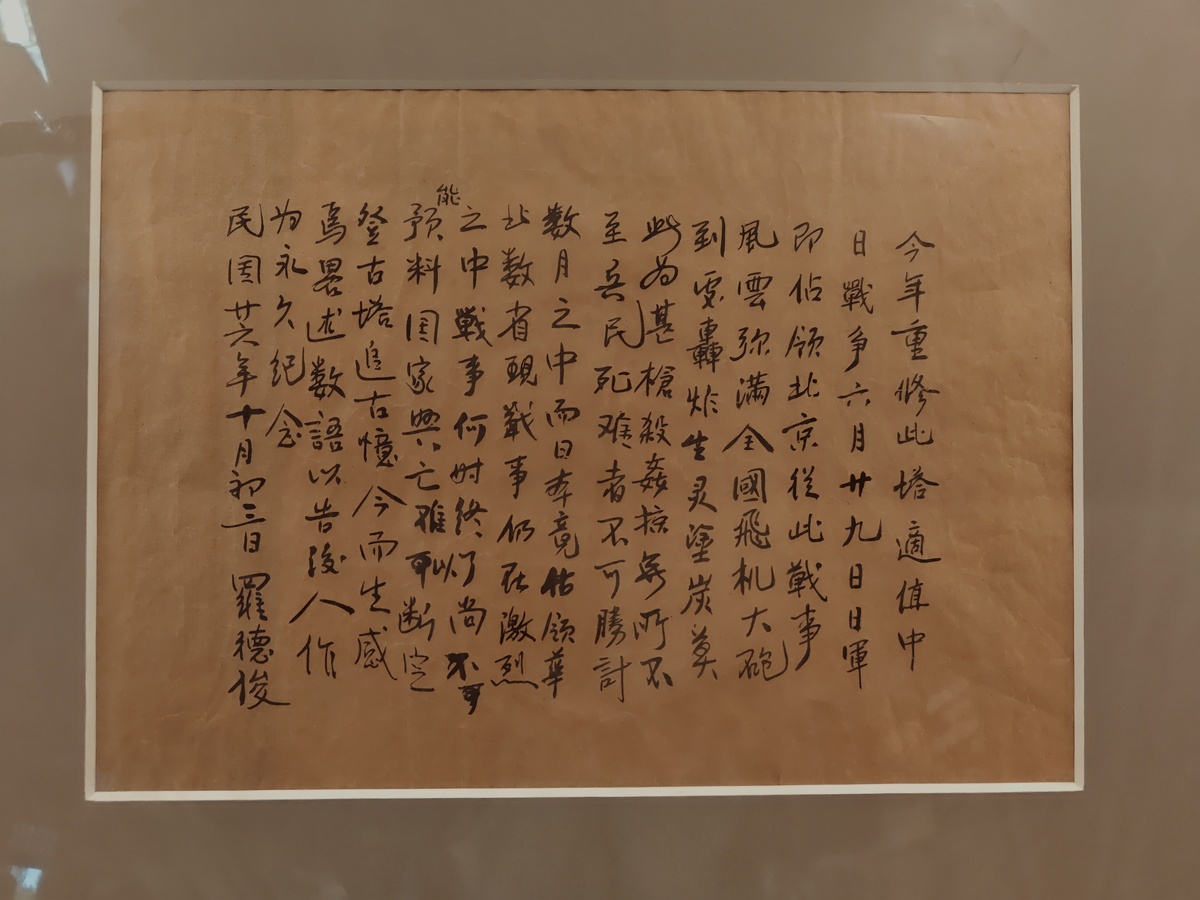 今年重修此塔適值中
日戰争六月廿九日日軍
即佔领北京從此戰事
風雲弥满全國飛机大砲
到处轟炸生灵塗炭莫
此为甚槍殺姦掠無所不
至兵民死难者不可勝計
数月之中而日本竟佔领華
北数省現戰事仍在激烈
之中戰事何时终了尚不可
能
預料国家興亡难以断定
登古塔追古憶今而生感
焉畧述数語以告後人作
为永久纪念
民国廿六年十月初三日 羅德俊